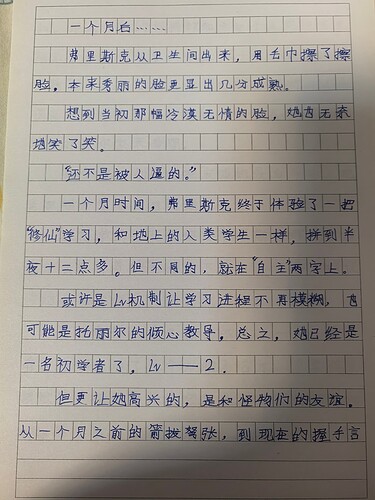 一个月白……
弗里斯克从卫生间出来，用毛巾擦了擦
脸，本来秀丽的脸更显出几分成熟。
想到当初那幅冷漠无情的脸，她也无奈
地笑了笑。
“还不是被人逼的。”
一个月时间，弗里斯克终于体验了一把
“修仙”学习，和地上的人类学生一样，拼到半
夜十二点多。但不同的，就在“自主”两字上。
或许是LV机制让学习进程不再模糊，也
可能是托丽尔的倾心教导。总之，她已经是
一名初学者了，LV——2.
但更让她高兴的，是和怪物们的友谊。
从一个月之前的箭拨弩张，到现在的握手言